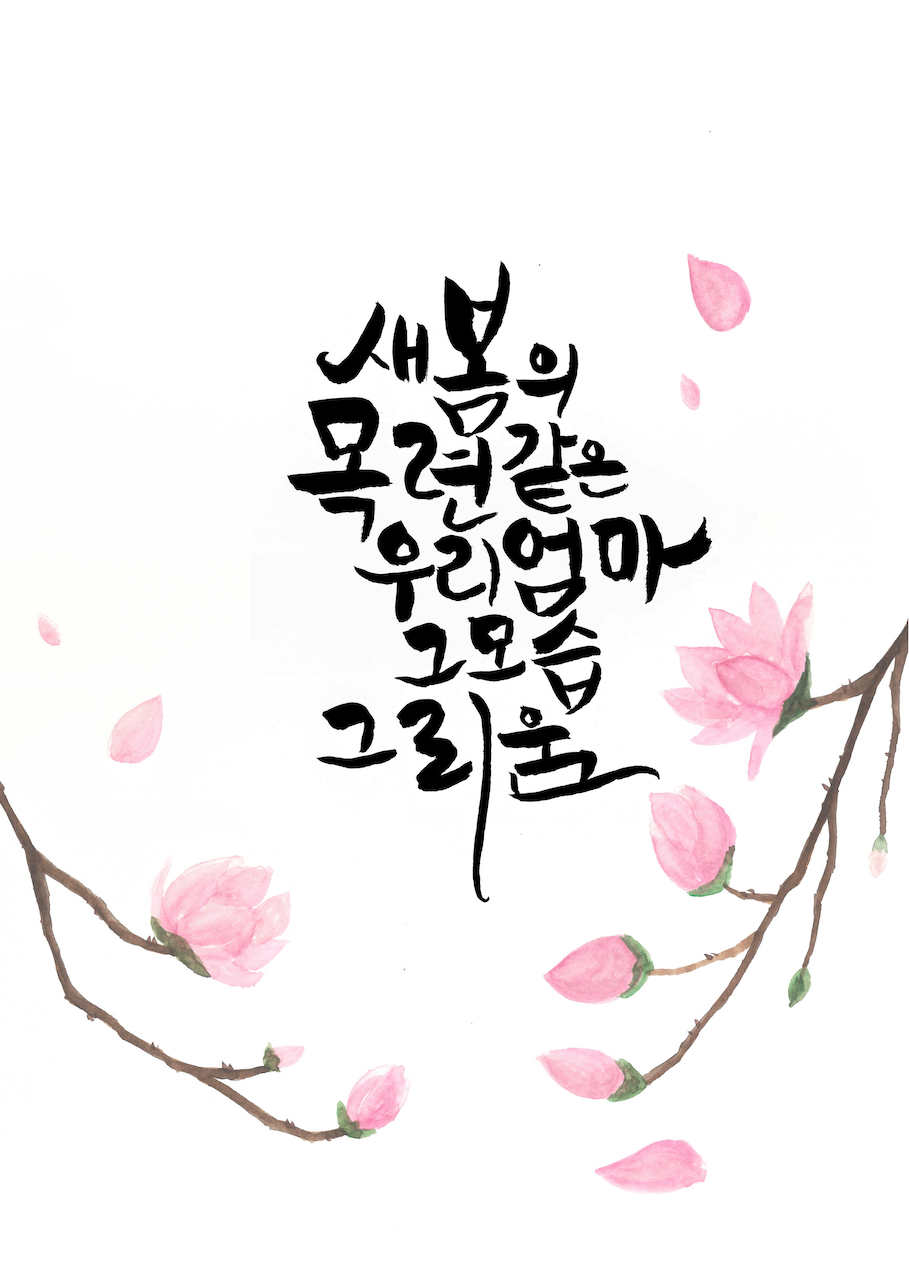 새봄의
목련같은
우리엄마
그모습
그리움